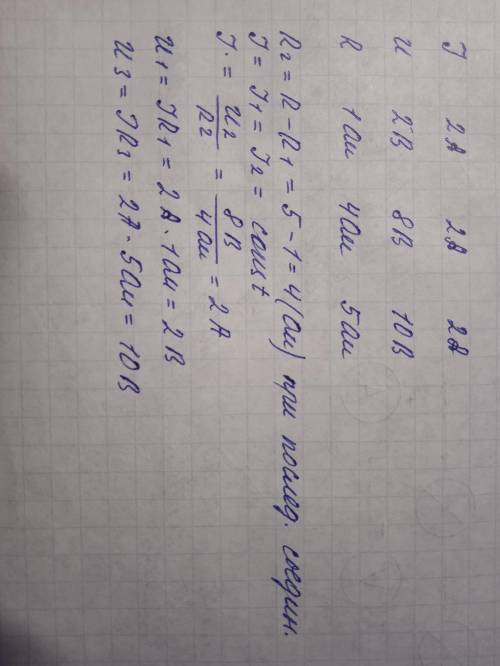 I 2А 2А 2А
U 2В 8В 10В
R 1Ом 4Ом 5Ом
R₂ = R - R₁ = 5 - 1 = 4 (Ом) при послед. соедин.
I = I₁ = I₂ = const
I = U₂/R₂ = 8В/4Ом = 2А
U₁ = IR₁ = 2А · 1Ом = 2В
U₃ = IR₃ = 2А · 5Ом = 10В